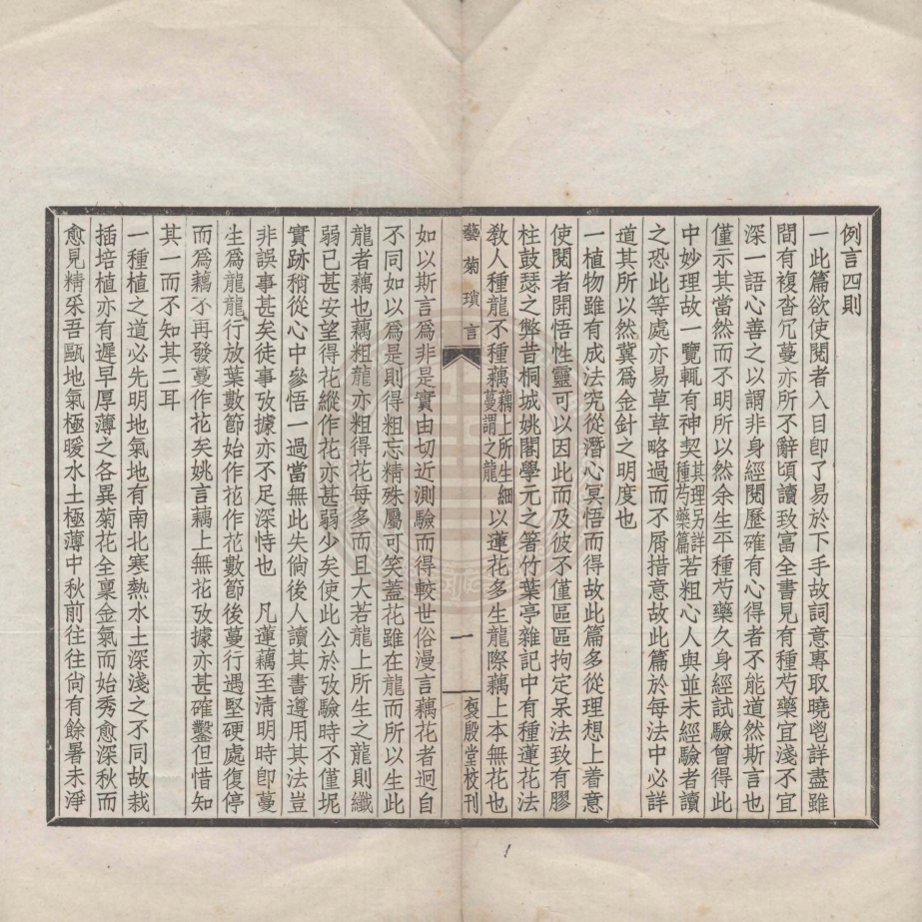 例言四則
一此篇欲使閱者入目卽了易於下手故詞意專取曉鬯詳盡雖
間有複沓冗蔓亦所不辭頃讀致富全書見有種芍藥宜淺不宜
深一語心善之以謂非身經閱歷確有心得者不能道然斯言也
僅示其當然而不明所以然余生平種芍藥久身經試驗曾得此
中妙理故一覽輒有神契其理另詳種芍藥篇若粗心人與並未經驗者讀
之恐此等處亦易草草略過而不屑措意故此篇於每法中必詳
道其所以然冀爲金針之明度也
一植物雖有成法究從潛心冥悟而得故此篇多從理想上着意
使閱者開悟性靈可以因此而及彼不僅區區拘定呆法致有膠
柱鼓瑟之弊昔桐城姚閣學元之箸竹葉亭雜記中有種蓮花法
敎人種龍不種藕藕上所生細蔓謂之龍以蓮花多生龍際藕上本無花也
藝菊瑣言
一
褒殷堂校刊
如以斯言爲非是實由切近測驗而得較世俗漫言藕花者迥自
不同如以爲是則得粗忘精殊屬可笑蓋花雖在龍而所以生此
龍者藕也藕粗龍亦粗得花每多而且大若龍上所生之龍則纖
弱已甚安望得花縱作花亦甚弱少矣使此公於攷驗時不僅坭
實跡稍從心中參悟一過當無此失倘後人讀其書遵用其法豈
非誤事甚矣徒事攷據亦不足深恃也　凡蓮藕至淸明時卽蔓
生爲龍龍行放葉數節始作花作花數節後蔓行遇堅硬處復停
而爲藕不再發蔓作花矣姚言藕上無花攷據亦甚確鑿但惜知
其一而不知其二耳
一種植之道必先明地氣地有南北寒熱水土深淺之不同故栽
插培植亦有遲早厚薄之各異菊花全稟金氣而始秀愈深秋而
愈見精采吾甌地氣極暖水土極薄中秋前往往尙有餘暑未淨